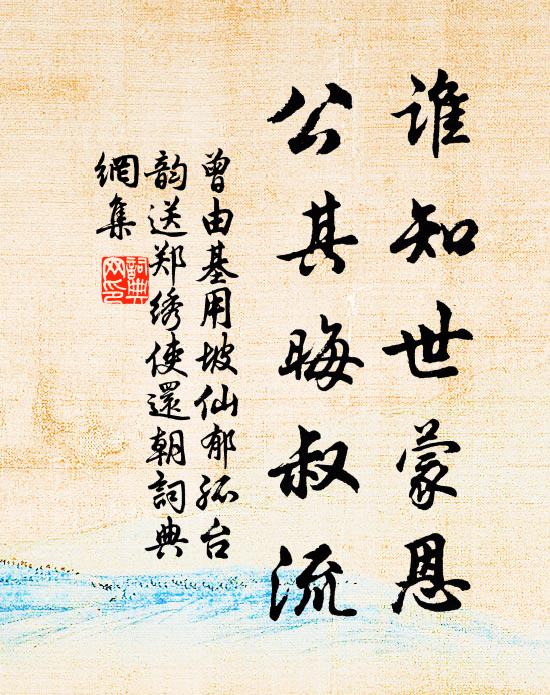 谁知世蒙恩
公其晦叔流
曾由基用坡仙郁孤台
韵送郑绣使還朝詞典
網集
詞典
网印